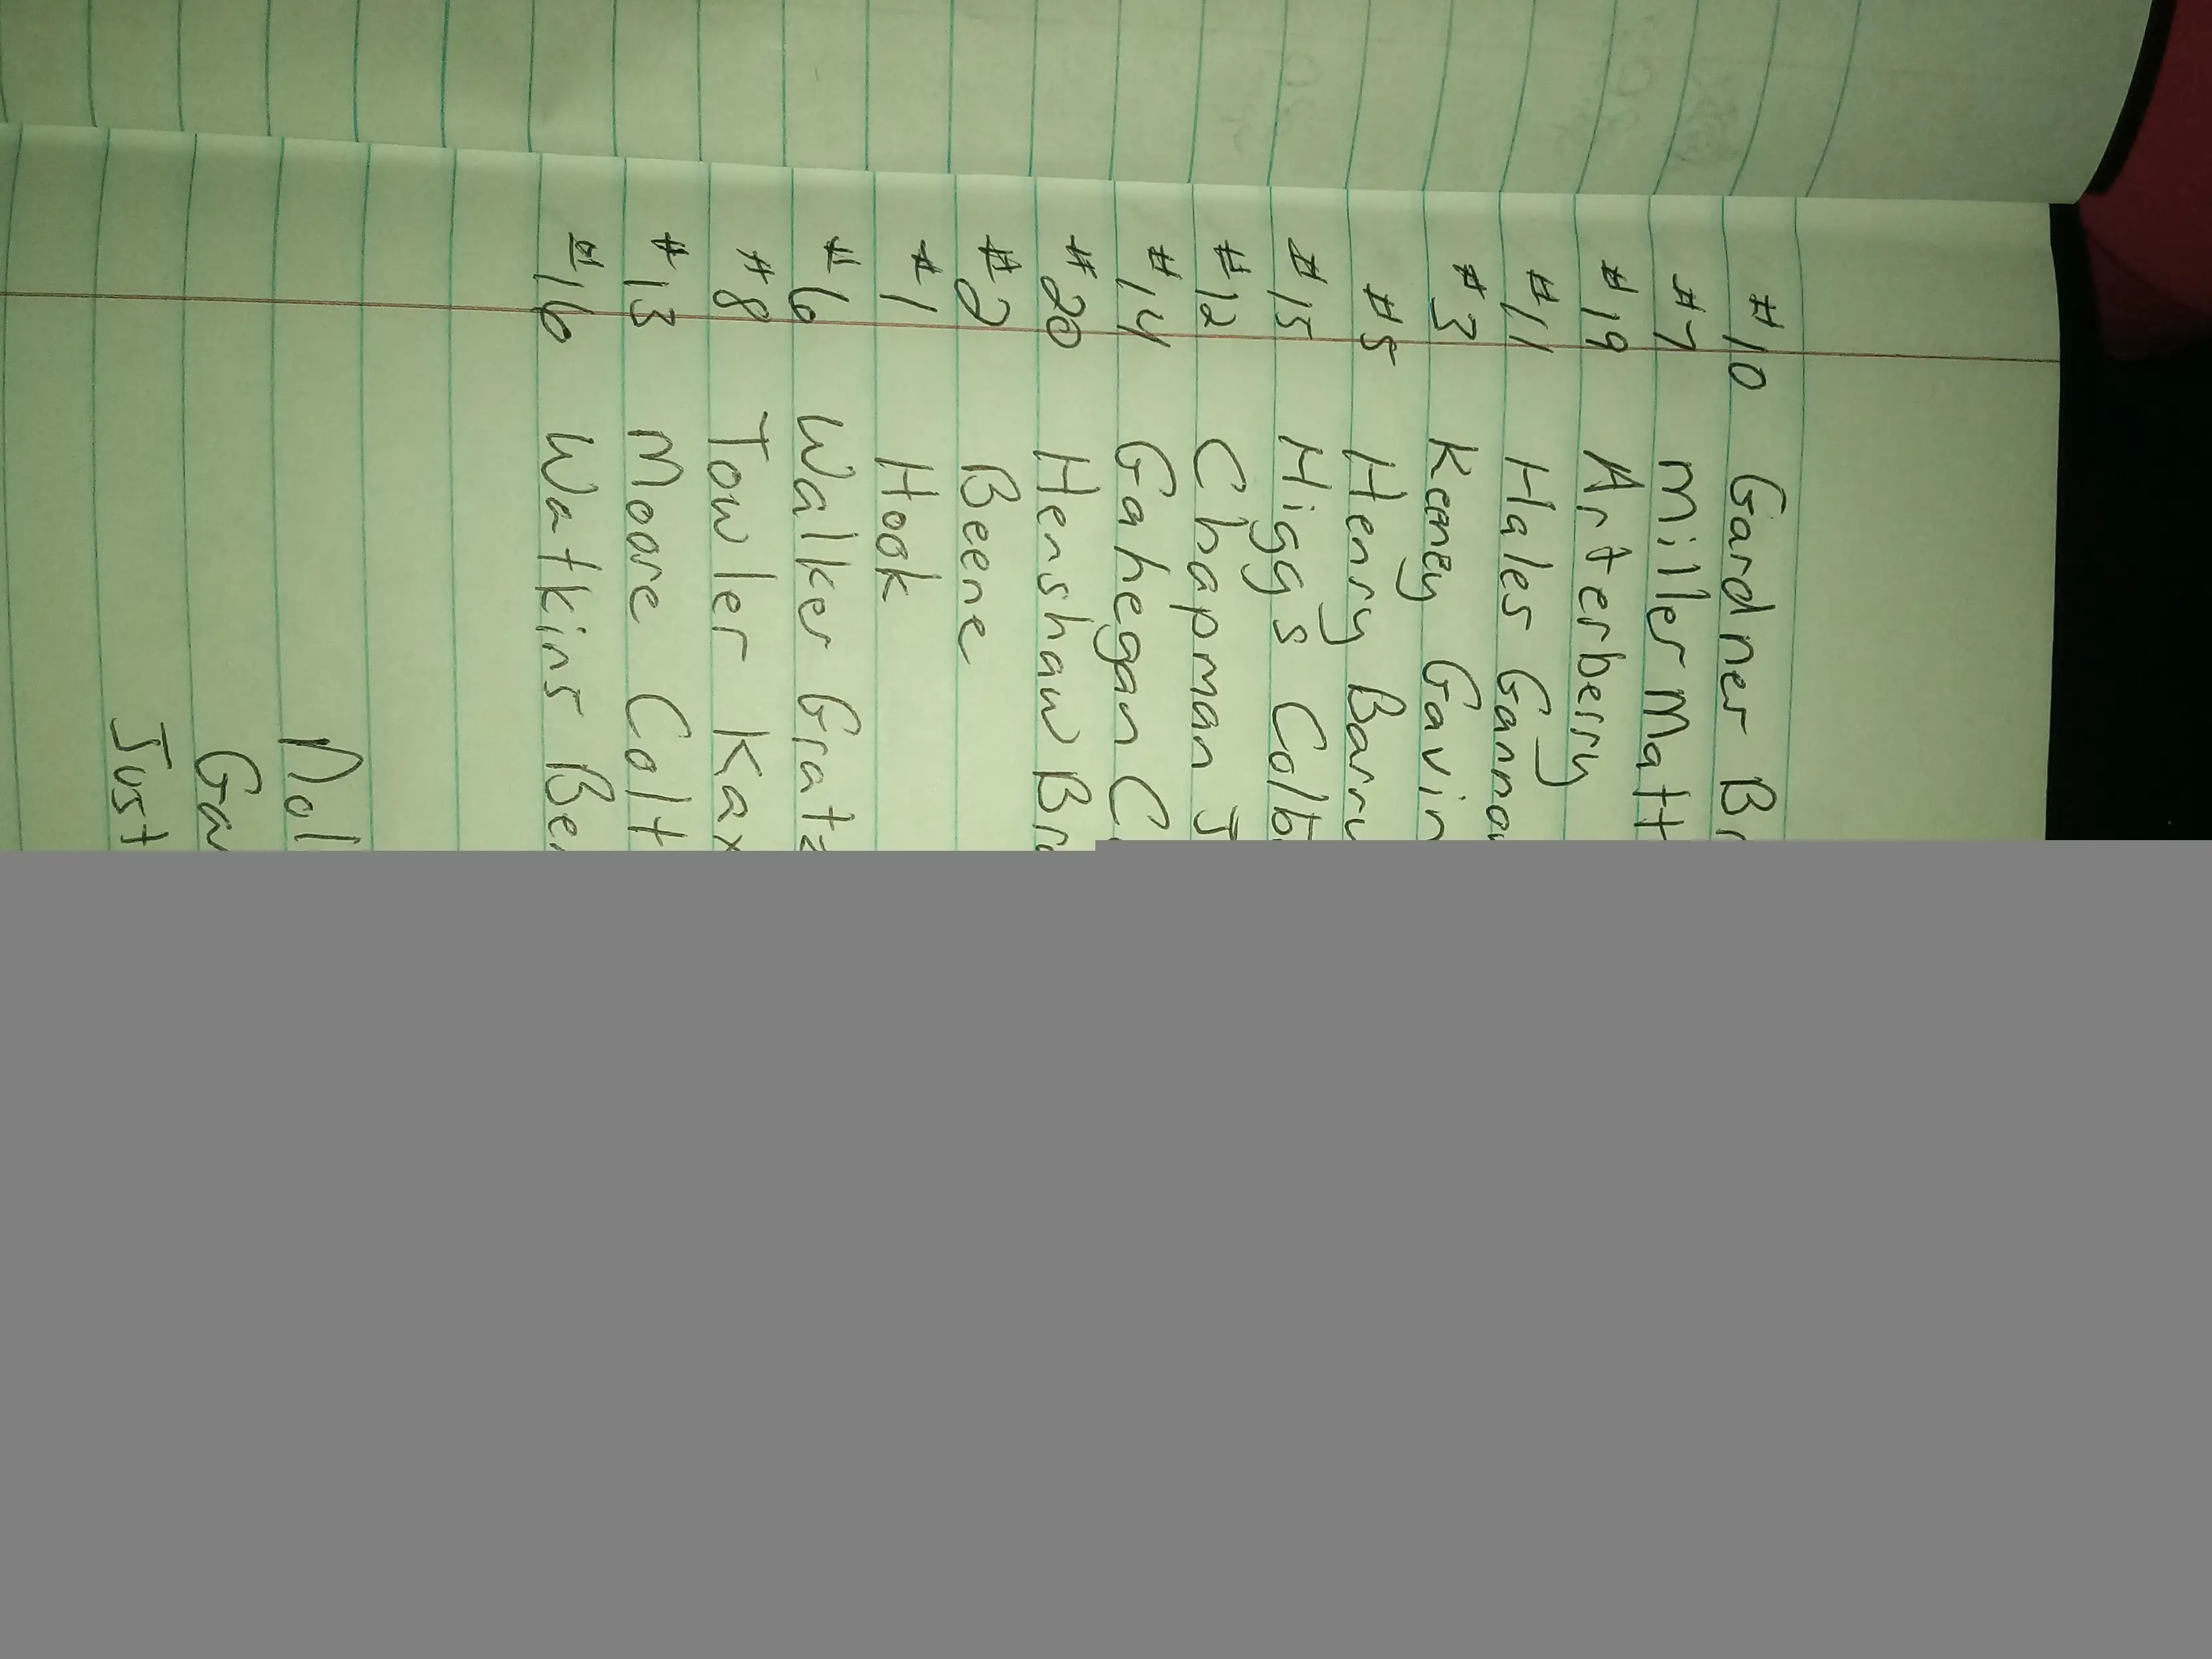 #10 Gardner Br
#7 Miller Matt
#19 Arterberry
#11 Hales Ganno
#3 Keeney Gavin
#5 Henry Barru
#15 Higgs Colb
#12 Chapman J
#14 Gahegan C
#20 Henshaw Br
#2 Beene
#1 Hook
#6 Walker Gratz
#8 Towler Kax
#13 Moore Colt
#16 Watkins Be
Nol
Ga
Just